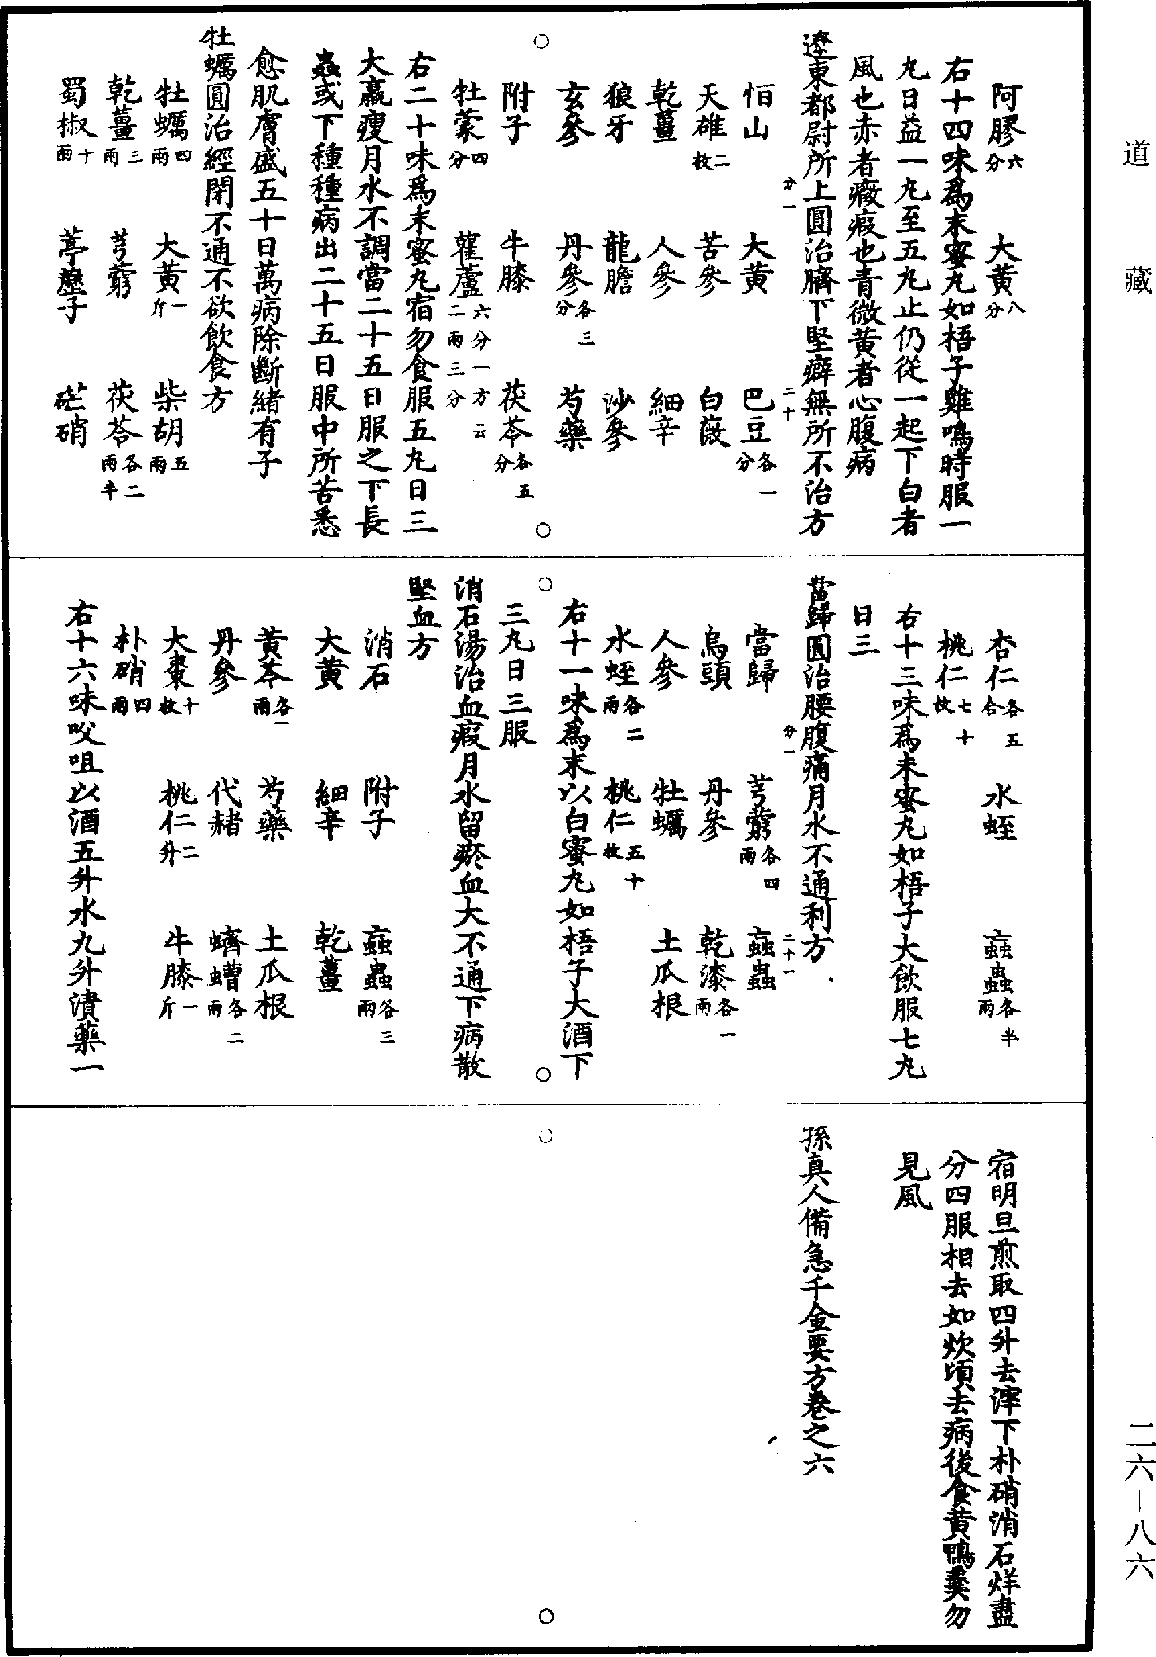 道藏
阿膠六分　大黃八分
右十四味爲末蜜丸如梧子雞鳴時服一
丸日益一丸至五丸止仍從一起下白者
風也赤者癥瘕也青微黃者心腹病
遼東都尉所上圓治臍下堅癖無所不治方
恒山　大黃分一　巴豆各一分二十
天雄二枚　苦參　白薇
乾薑　人參　細辛
狼牙　龍膽　沙參
玄參　丹參各三分　芍藥
附子　牛膝　茯苓各五分
牡蒙四分　雚蘆六分一方云二兩三分
右二十味爲末蜜丸宿勿食服五丸日三
大羸瘦月水不調當二十五日服之下長
蟲或下種種病出二十五日服中所苦悉
愈肌膚盛五十日萬病除斷緒有子
牡蠣圓治經閉不通不欲飲食方
牡蠣四兩　大黃一斤　柴胡五兩
乾薑三兩　芎藭　茯苓各二兩半
蜀椒十兩　葶藶子　芒硝
杏仁各五合　水蛭　䗪蟲各半兩
桃仁七十枚
右十三味爲末蜜丸如梧子大飲服七丸
日三
當歸圓治腰腹痛月水不通利方
當歸　芎藭各四兩分一　䗪蟲二十一
烏頭　丹參　乾漆各一兩
人參　牡蠣　土瓜根
水蛭各二兩　桃仁五十枚
右十一味爲末以白蜜丸如梧子大酒下
三丸日三服
消石湯治血瘕月水留瘀血大不通下病散
堅血方
消石　附子　䗪蟲各三兩
大黃　細辛　乾薑
黃芩各一兩　芍藥　土瓜根
丹參　代赭　蠐螬各二兩
大棗十枚　桃仁二升　牛膝一斤
朴硝四兩
右十六味㕮咀以酒五升水九升漬藥一
宿明旦煎取四升去滓下朴硝消石烊盡
分四服相去如炊頃去病後食黃鴨羹勿
見風
孫真人備急千金要方卷之六
二六－八六